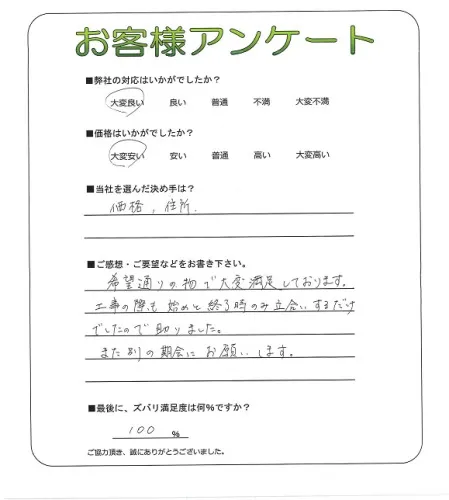 お客様アンケート
■弊社の対応はいかがでしたか？
大変良い 良い 普通 不満 大変不満
■価格はいかがでしたか？
大変安い 安い 普通 高い 大変高い
■当社を選んだ決め手は？
価格，住所．
■ご感想・ご要望などをお書き下さい。
希望通りの物で大変満足しております。
工事の際も始めと終了時のみ立合いするだけ
でしたので助りました。
また別の期会にお願いします。
■最後に、ズバリ満足度は何％ですか？
100 ％
ご協力頂き、誠にありがとうございました。